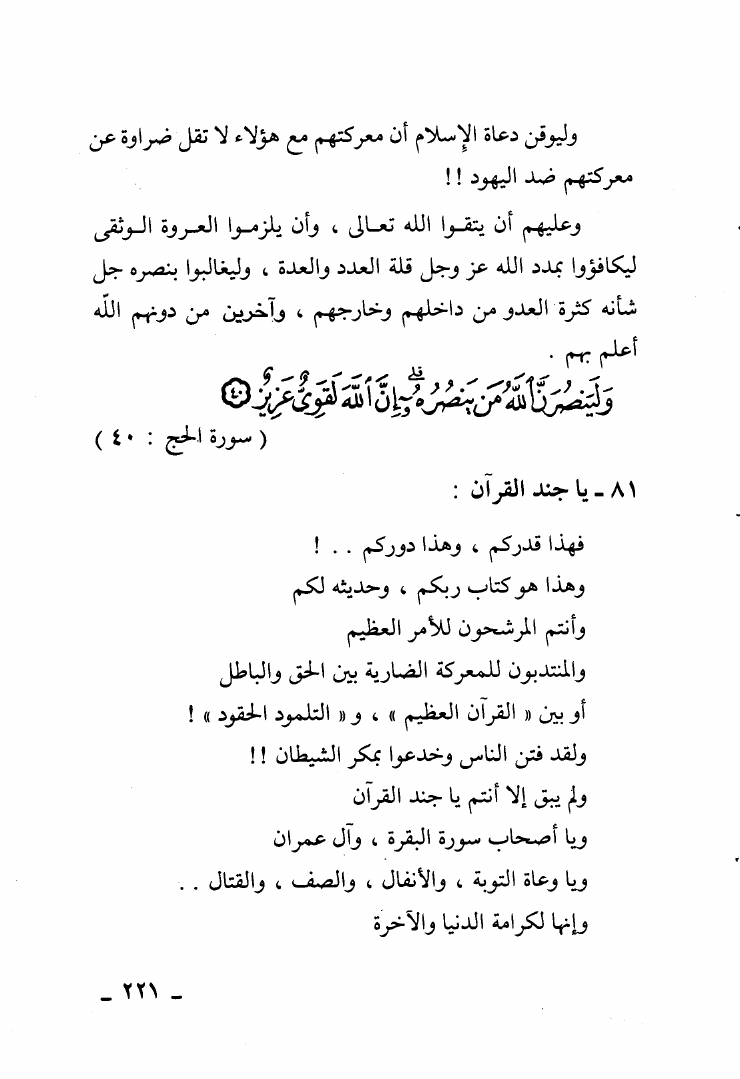 وليوقن دعاة الإسلام أن معركتهم مع هؤلاء لا تقل ضراوة عن
معركتهم ضد اليهود !!
وعليهم أن يتقـوا الله تعـالى ، وأن يلزمـوا العـروة الـوثقى
ليكافؤوا بمدد الله عز وجل قلة العدد والعدة ، وليغالبوا بنصره جل
شأنه كثرة العدو من داخلهم وخارجهم ، وآخرين من دونهم اللّه
أعلم بهم .
وَلَيَنصُرَنَّ ٱللَّهُ مَن يَنصُرُهُۥٓ ۗ إِنَّ ٱللَّهَ لَقَوِىٌّ عَزِيزٌ ٤٠
( سورة الحج : ٤٠ )
٨١ ـ يا جند القرآن :
فهذا قدركم ، وهذا دوركم . . !
وهذا هو كتاب ربكم ، وحديثه لكم
وأنتم المرشحون للأمر العظيم
والمنتدبون للمعركة الضارية بين الحق والباطل
أو بين « القرآن العظيم » ، و « التلمود الحقود » !
ولقد فتن الناس وخدعوا بمكر الشيطان !!
ولم يبق إلا أنتم يا جند القرآن
ويا أصحاب سورة البقرة ، وآل عمران
ويا وعاة التوبة ، والأنفال ، والصف ، والقتال . .
وإنها لكرامة الدنيا والآخرة
ـ ٢٢١ ـ